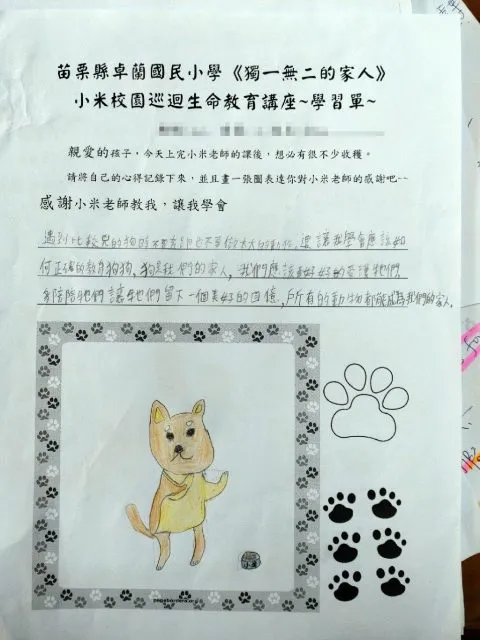 苗栗縣卓蘭國民小學《獨一無二的家人》
小米校園巡迴生命教育講座~學習單~
親愛的孩子，今天上完小米老師的課後，想必有很不少收穫。
請將自己的心得記錄下來，並且畫一張圖表達你對小米老師的感謝吧~~
感謝小米老師教我，讓我學會
遇到比較兇的狗時不要亂跑也不要做太大的動作，還讓我學會應該如
何正確的教育狗狗，狗是我們的家人，我們應該要好好的愛護牠們
多陪陪牠們讓牠們留下一個美好的回憶，所有的動物都能成為我們的家人。